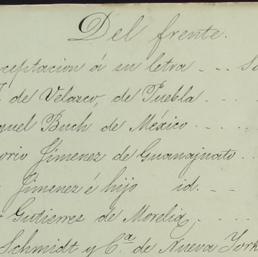 Del frente.
ceptacion á su letra - - - S
de Velasco, de Puebla - - -
guel Buch de México - - - -
orio Jimenez de Guanajuato - -
Jimenez é hijo id. - - -
Gutierres de Morelia, - - - -
Schmidt y Cª de Nueva York